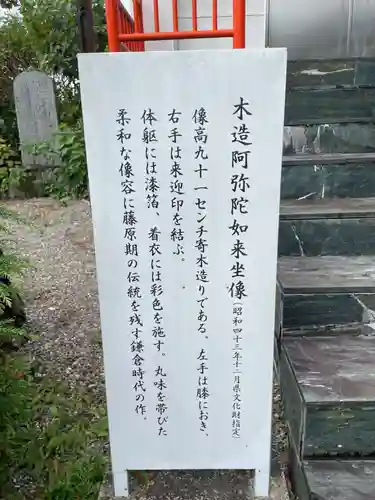 木造阿弥陀如来坐像（昭和四十三年十二月県文化財指定）
像高九十一センチ寄木造りである。左手は膝におき、
右手は来迎印を結ぶ。
体躯には漆箔、着衣には彩色を施す。丸味を帯びた
柔和な像容に藤原期の伝統を残す鎌倉時代の作。